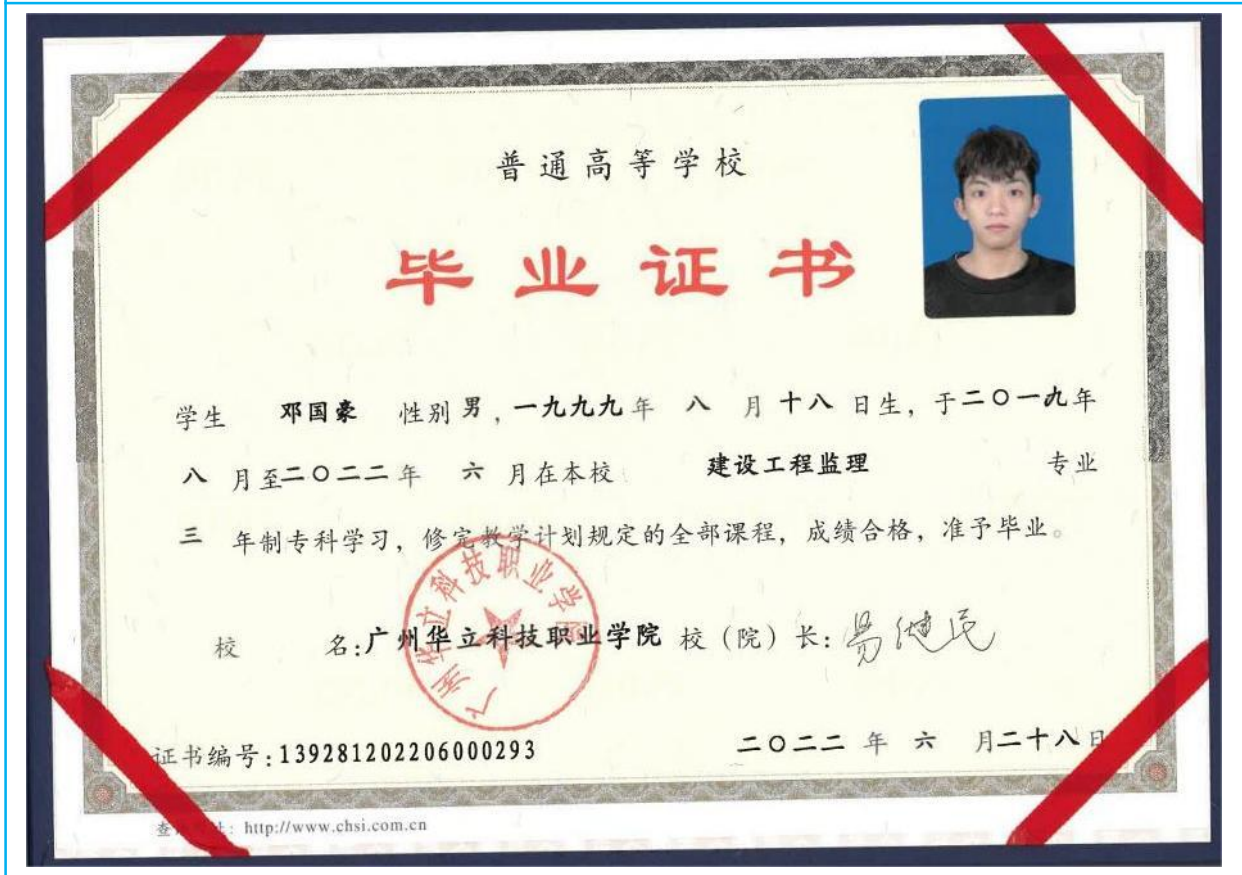 普通高等学校
毕业证书
学生 邓国豪 性别 男，一九九九年 八 月十八 日生，于二〇一九年
八 月至二〇二二年 六 月在本校 建设工程监理 专业
三 年制专科学习，修完教学计划规定的全部课程，成绩合格，准予毕业。
广州华立科技职业学院
校 名：广州华立科技职业学院 校（院）长：易健民
证书编号：139281202206000293 二〇二二 年 六 月二十八日
http://www.chsi.com.cn